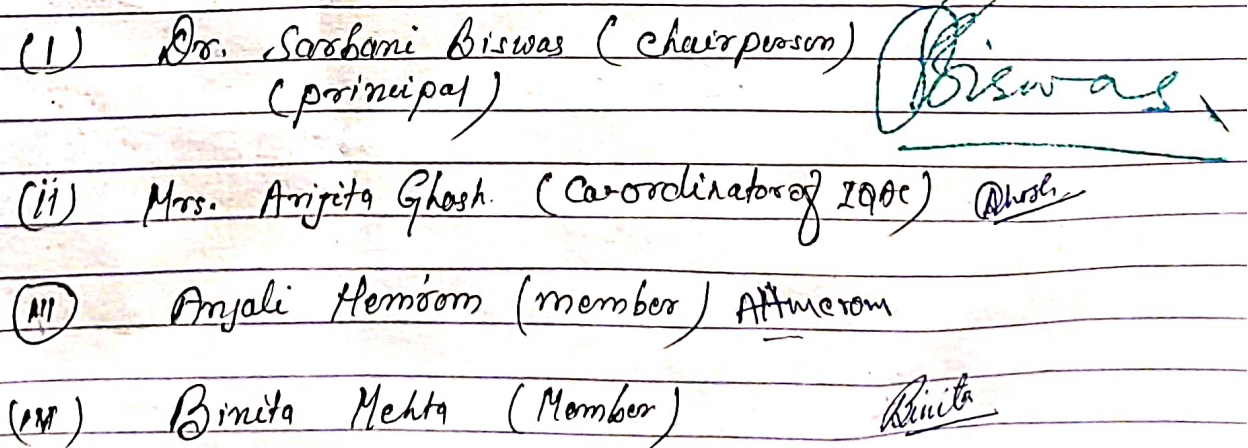 (1) Dr. Sarbani Biswas (chairperson) Biswas
(principal)
(ii) Mrs. Arijita Ghosh. (Co-ordinator of IQAC) Ghosh
(iii) Anjali Hemrom (member) AHmerom
(iv) Binita Mehta (Member) Binita